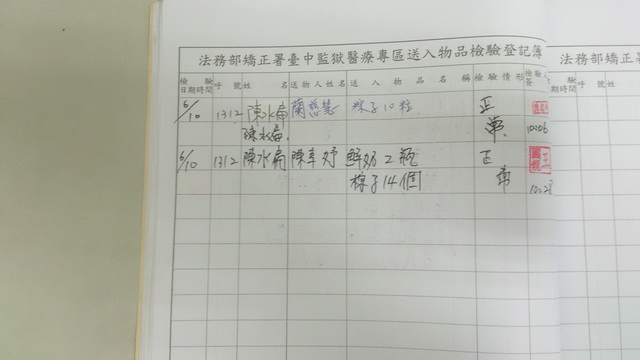 法務部矯正署臺中監獄醫療專區送入物品檢驗登記簿
檢驗日期時間 呼號 姓名 送物人姓名 送入物品名稱 檢驗情形
6/10 1312 陳水扁 蘭慈慧 粽子10粒 正常
陳水扁 1006
6/10 1312 陳水扁 陳幸妤 鮮奶2瓶 正常
粽子14個
法務部矯正署
檢驗日期時間 呼號 姓